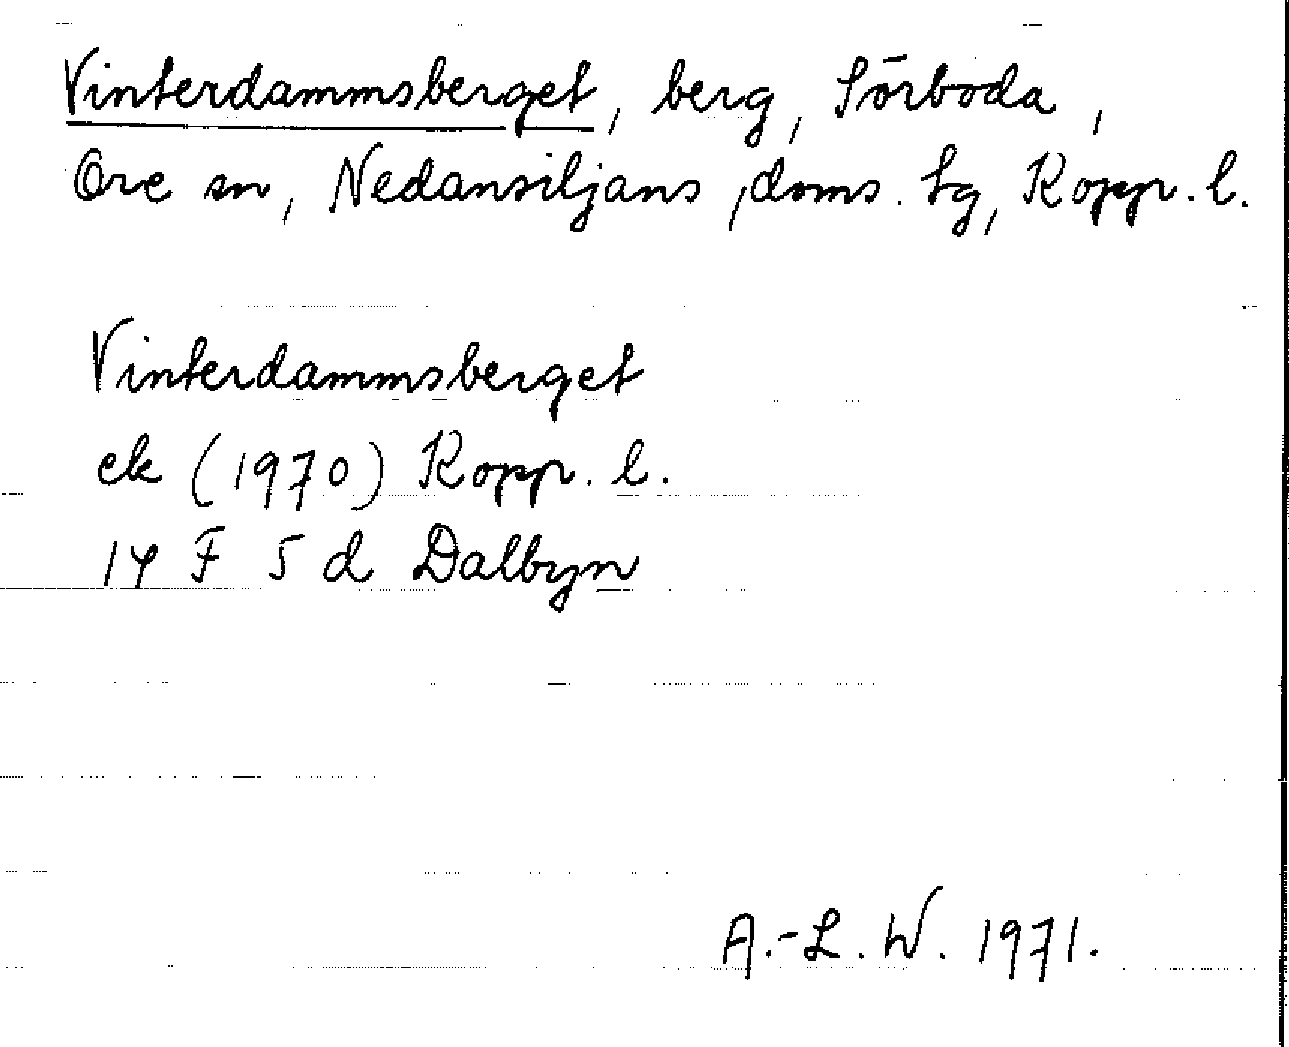 Vinterdammsberget, berg, Sörboda,
Ore sn, Nedansiljans, doms. hg, Kopp. l.
Vinterdammsberget
ek (1970) Kopp. l.
14 F 5 d Dalbyn
A.-L. W. 1971.